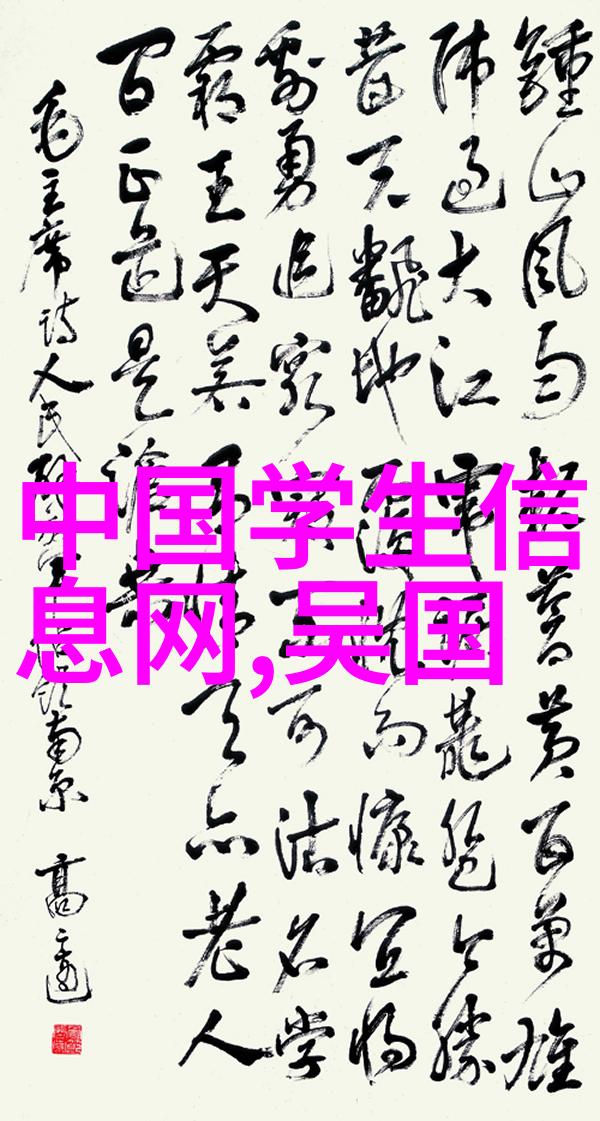 鍾山風雨起蒼黃百萬雄
师過大江虎踞龍盤今勝
昔天翻地覆慨而慷宜將
剩勇追窮寇不可沽名學
霸王天若有情天亦老人
間正道是滄桑
毛主席詩人民解放军占领南京 高
中国学生信
息网,吴国